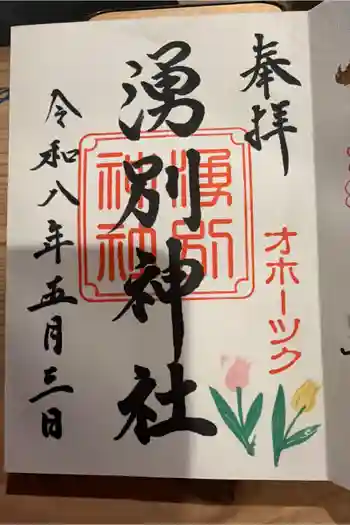 奉拝
湧別神社
湧別
神社
オホーツク
令和八年五月三日